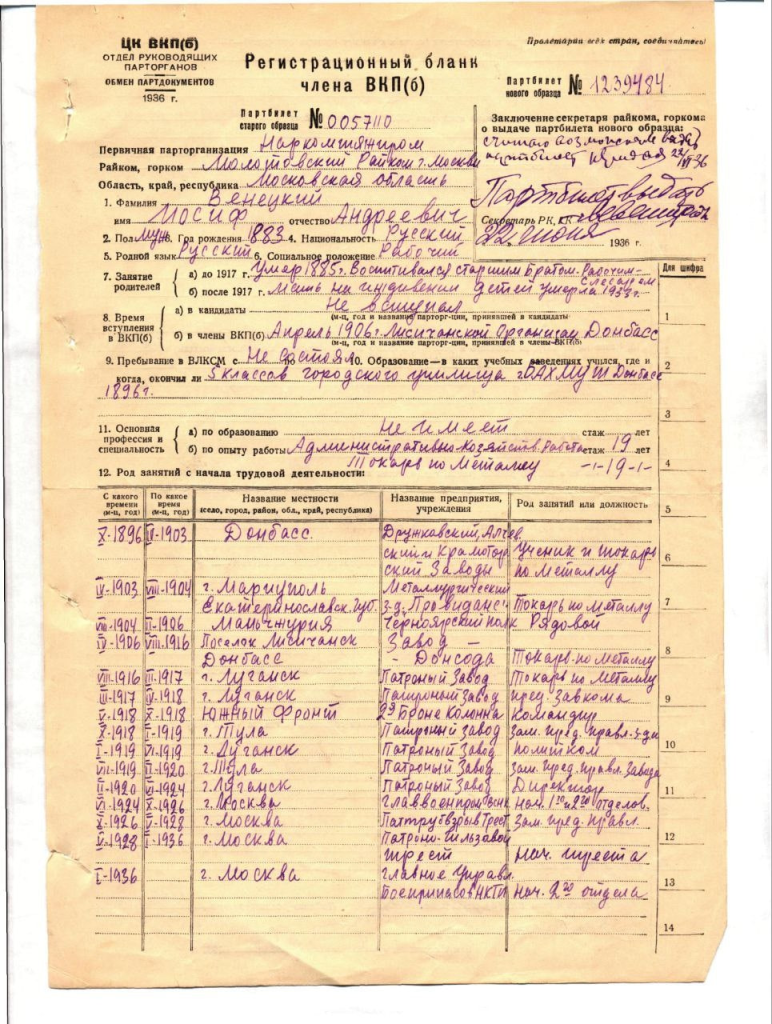 Пролетарии всех стран, соединяйтесь!
ЦК ВКП(б)
ОТДЕЛ РУКОВОДЯЩИХ
ПАРТОРГАНОВ
ОБМЕН ПАРТДОКУМЕНТОВ
1936 г.
Регистрационный бланк
члена ВКП(б)
Партбилет
нового образца № 1239484
Партбилет
старого образца № 0057110
Заключение секретаря райкома, горкома
о выдаче партбилета нового образца:
считаю возможным
партбилет
Партбилет выдать
Секретарь РК, ГК
22 июня 1936 г.
Первичная парторганизация Наркомтяжпром
Райком, горком Молотовский Райком г. Москвы
Область, край, республика Московская область
1. Фамилия Венецкий
имя Иосиф отчество Андреевич
2. Пол муж 3. Год рождения 1883 4. Национальность Русский
5. Родной язык Русский 6. Социальное положение Рабочий
7. Занятие родителей
а) до 1917 г. Умер 1885 г. Воспитывался старшим Братом-Рабочим-Слесарем
б) после 1917 г. Мать на иждивении детей умерла 1933 г.
8. Время вступления в ВКП(б)
а) в кандидаты Не вступал
(м-ц, год и название парторг-ции, принявшей в кандидаты)
б) в члены ВКП(б) Апрель 1906 г. Лисичанской Организац Донбасс
(м-ц, год и название парторг-ции, принявшей в члены ВКП(б)
9. Пребывание в ВЛКСМ с Не состоял по 10. Образование—в каких учебных заведениях учился, где и
когда, окончил ли 5 классов городского училища г. Бахмут Донбасс
1896 г.
11. Основная профессия и специальность
а) по образованию Не имеет стаж лет
б) по опыту работы Административно-хозяйств. Работа стаж 19 лет
Токарь по Металлу -1-19-1-
12. Род занятий с начала трудовой деятельности:
Для шифра
1
2
3
4
5
6
7
8
9
10
11
12
13
14
С какого времени (м-ц, год) По какое время (м-ц, год) Название местности (село, город, район, обл., край, республика) Название предприятия, учреждения Род занятий или должность
X-1896 II-1903 Донбасс. Дружковский, Алчев
ский и Краматор ученик и токарь
ский Заводы по металлу
IV-1903 VIII-1904 г. Мариуполь Металлургический
Екатеринославск. Губ. з-д. Провиданс Токарь по Металлу
VIII-1904 II-1906 Маньчжурия Черноярский полк Рядовой
IV-1906 VIII-1916 Поселок Лисичанск Завод -
Донбасс - Донсода Токарь по Металлу
VIII-1916 III-1917 г. Луганск Патроный Завод Токарь по Металлу
III-1917 IV-1918 г. Луганск Патроный Завод пред. Завкома
V-1918 X-1918 Южный Фронт 2я Броне Колонна Командир
X-1918 I-1919 г. Тула Патроный Завод Зам. пред. правл. з-да
I-1919 VI-1919 г. Луганск Патроный Завод политком
VII-1919 II-1920 г. Тула Патроный Завод Зам. пред. правл. Завода
II-1920 VI-1924 г. Луганск Патроный Завод Директор
VI-1924 X-1926 г. Москва Главвоенпром Нач. 1го и 2го отделов.
X-1926 V-1928 г. Москва Патрубвзрыв Трест Зам. пред. правл.
V-1928 I-1936 г. Москва Патроно-Гильзовой
трест Нач. треста
I-1936 г. Москва Главное Управл.
Боеприпасов НКТП Нач. 2го отдела